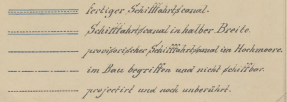 fertiger Schifffahrtscanal.
Schifffahrtscanal in halber Breite
provisorischer Schifffahrtscanal im Hochmoore.
im Bau begriffen und nicht schiffbar.
projectirt und noch unberührt.